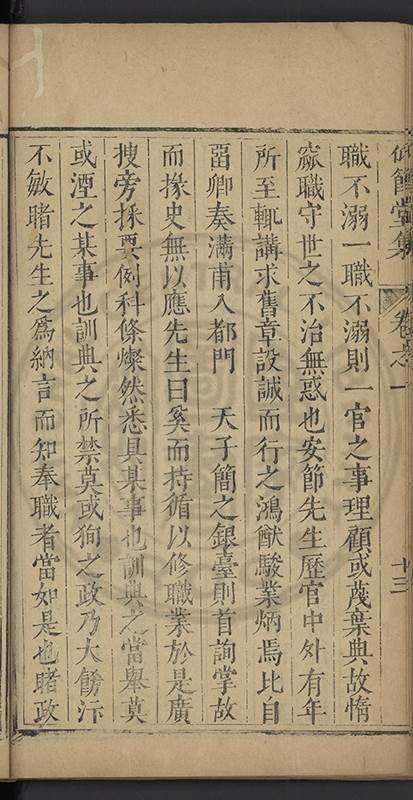 饎堂集 卷之一 十三
職不溺一職不溺則一官之事理顧或蔑棄典故惰
窳職守世之不治無惑也安節先生歷官中外有年
所至輒講求舊章設誠而行之鴻猷駿業炳焉比自
畱卿奏滿甫入都門 天子簡之銀臺則首詢掌故
而掾史無以應先生曰奚而持循以修職業於是廣
搜旁採要例科條燦然悉具某事也訓典之當舉莫
或湮之某事也訓典之所禁莫或狥之政乃大飭汴
不敏睹先生之為納言而知奉職者當如是也睹政